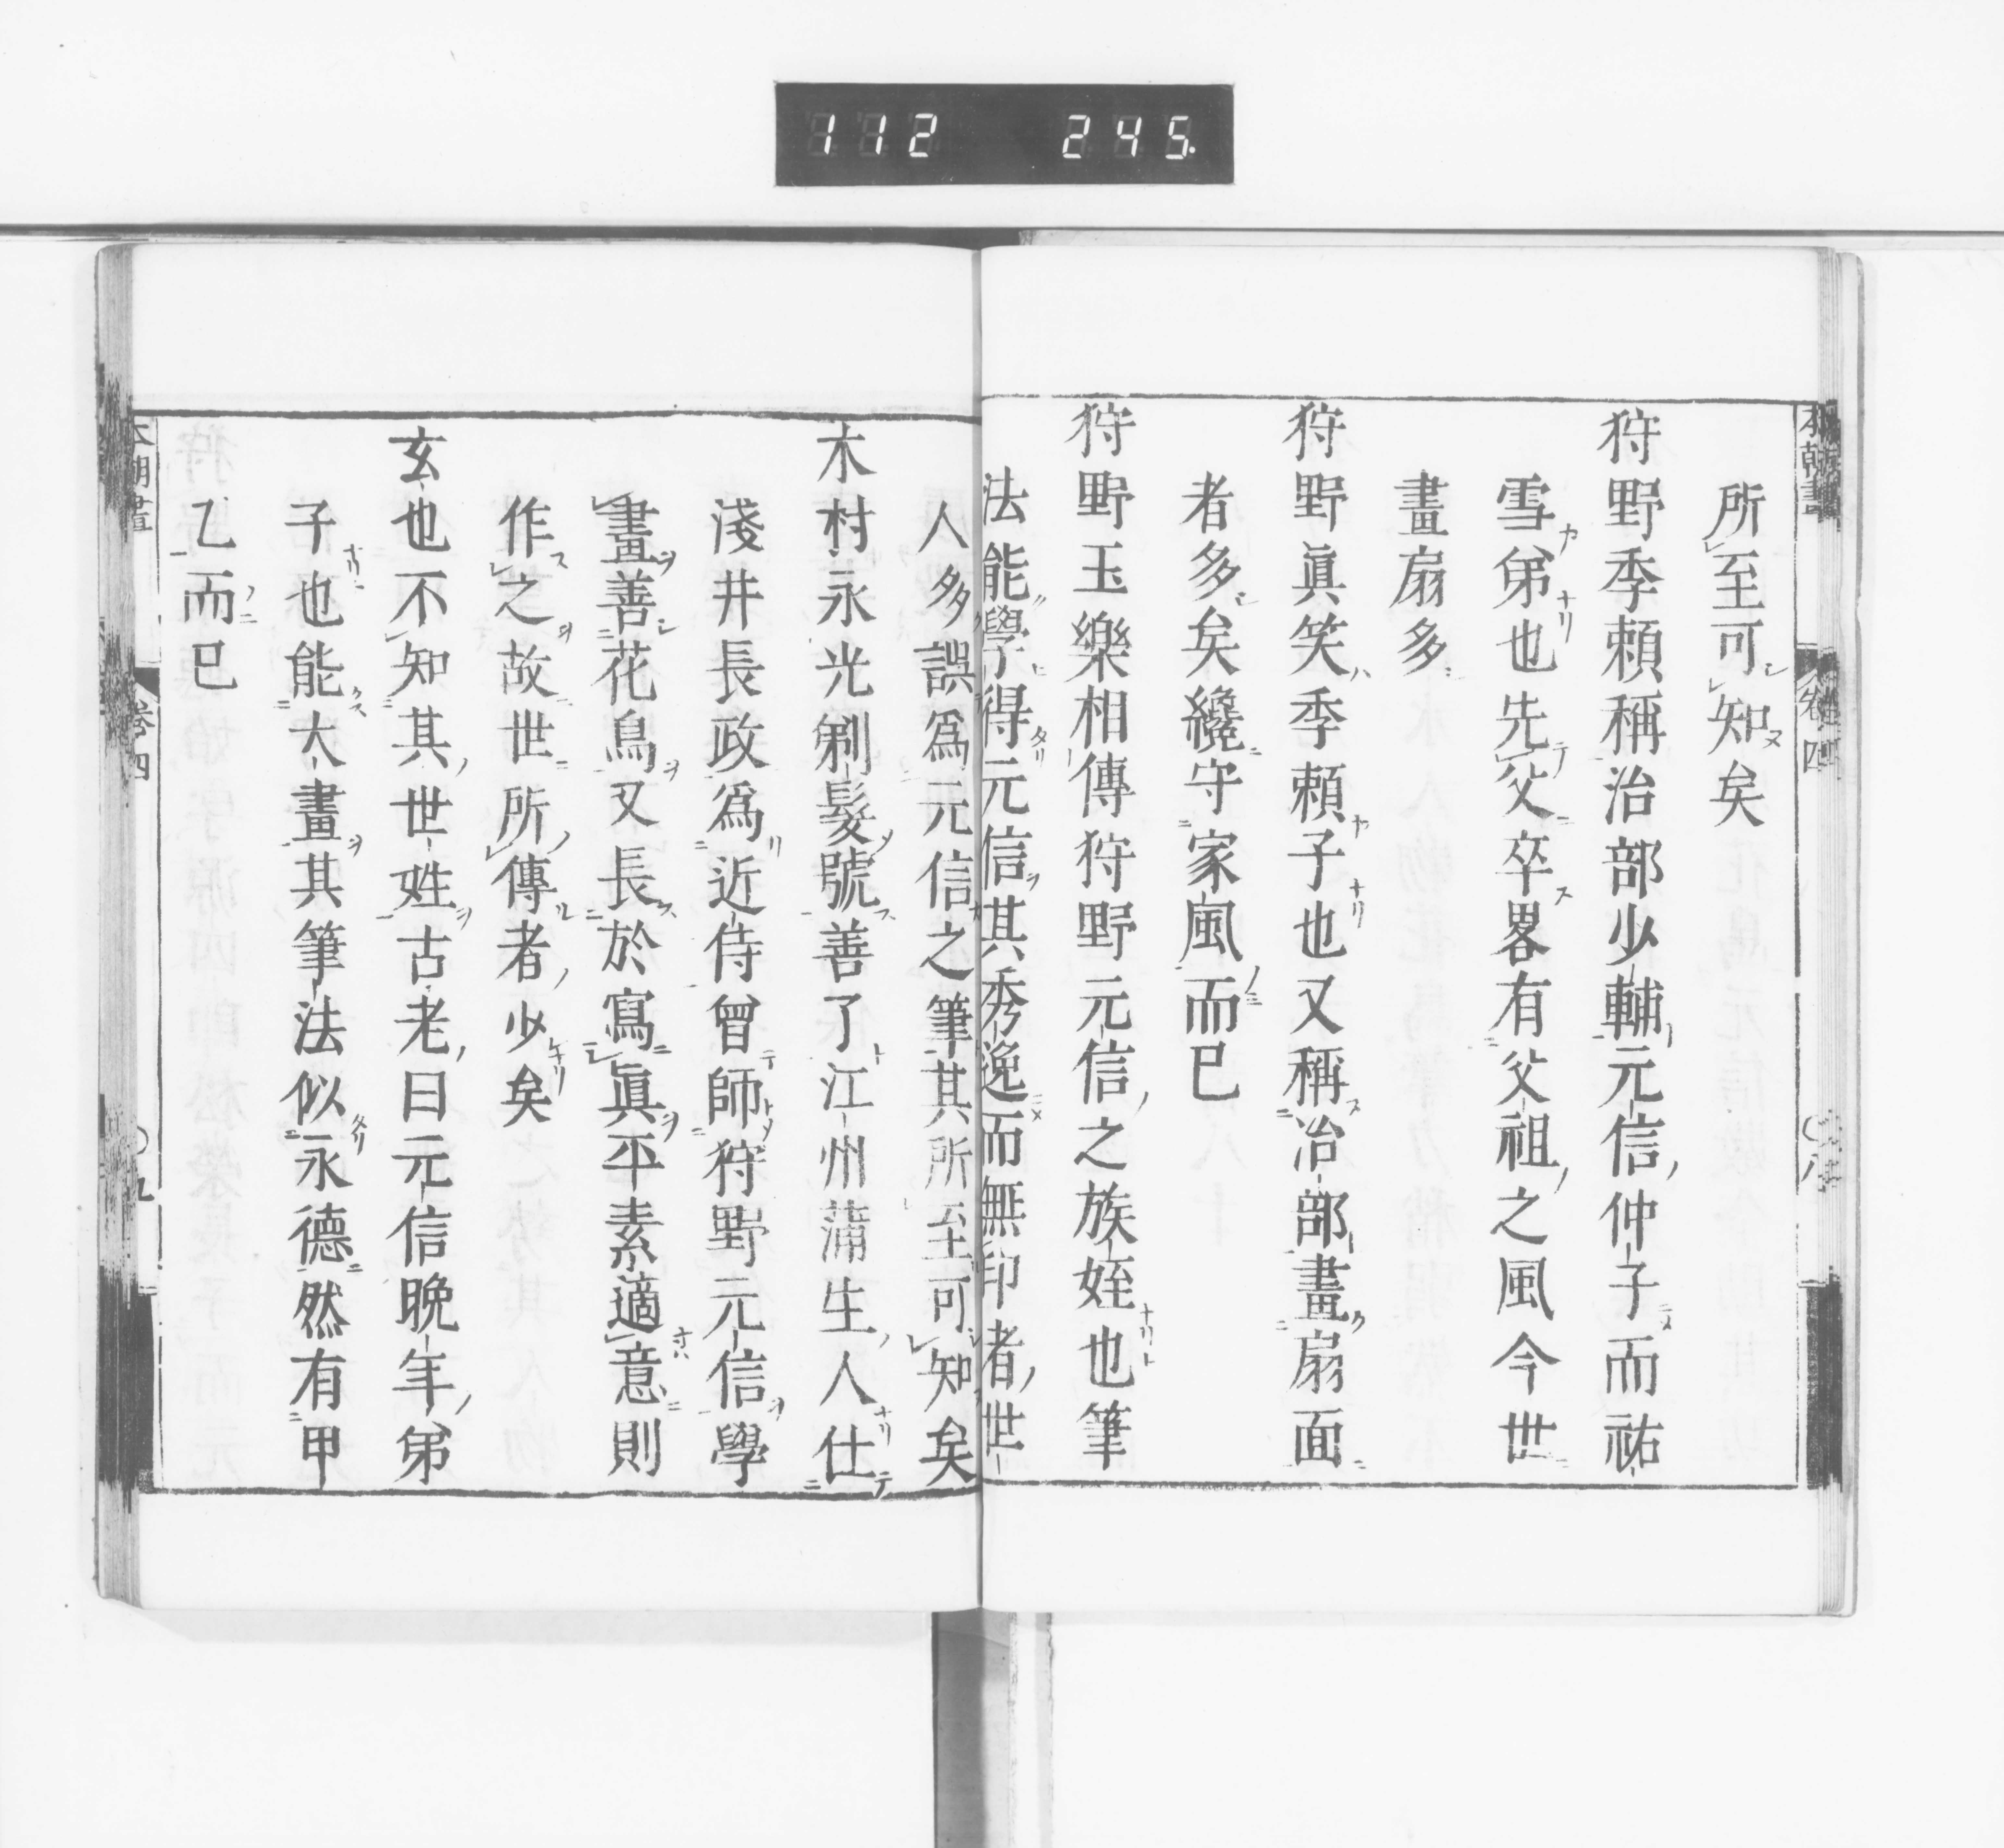 112 245.
本朝畫 卷四 〇八
所至可知矣
狩野季頼稱治部少輔元信仲子而祐
雪弟也先父卒畧有父祖之風今世
畫扇多
狩野眞笑季頼子也又稱治部畫扇面
者多矣纔守家風而已
狩野玉樂相傳狩野元信之族姪也筆
法能學得元信其秀逸而無印者世
人多誤爲元信之筆其所至可知矣
木村永光剃髮號善了江州蒲生人仕
淺井長政爲近侍曾師狩野元信學
畫善花鳥又長於寫眞平素適意則
作之故世所傳者少矣
玄也不知其世姓古老曰元信晩年弟
子也能大畫其筆法似永德然有甲
乙而已
本朝畫 卷四 〇九